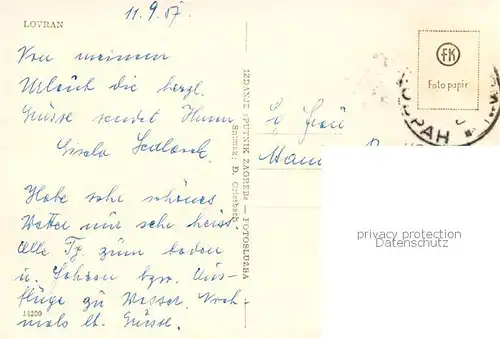 LOVRAN
11.9.57
Von meinem
Urlaub die herzl.
Grüsse sendet Ihnen
Gisela
Habe sehr schönes
Wetter nur sehr heiss.
Alle Tg. zum baden
u. bzw. Aus-
flüge zu Wasser. Noch-
mals lb. Grüsse.
14230
IZDANJE »PUTNIK ZAGREB« — FOTOSLUŽBA
Snimak: D.
FK
Foto papir
Frau
privacy protection
Datenschutz